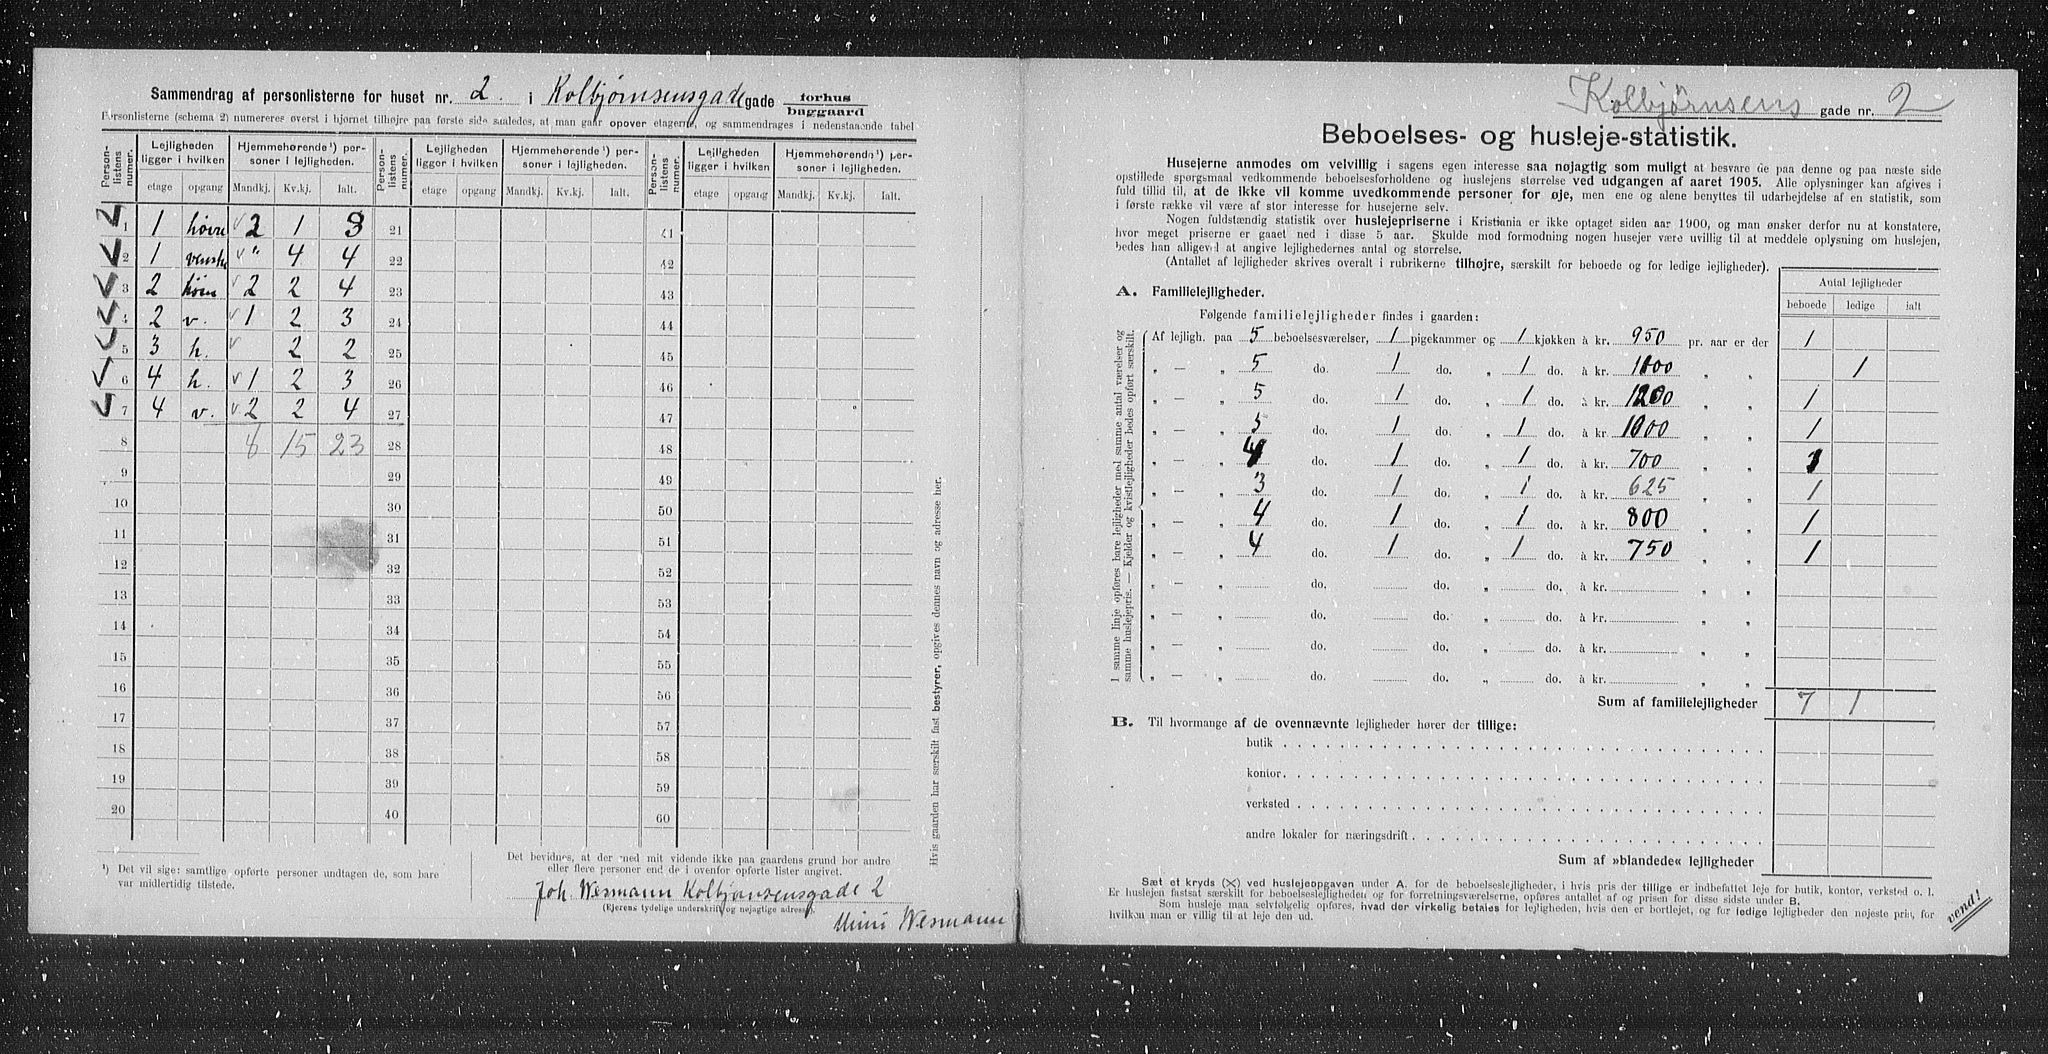 Sammendrag af personlisterne for huset nr. 2 i Kolbjørnsensgade gade forhus baggaard
Personlisterne (schema 2) numereres øverst i hjørnet tilhøjre paa første side saaledes, at man gaar opover etagerne, og sammendrages i nedenstaaende tabel
Person-listens numer. Lejligheden ligger i hvilken Hjemmehørende¹) personer i lejligheden. Person-listens numer. Lejligheden ligger i hvilken Hjemmehørende¹) personer i lejligheden. Person-listens numer. Lejligheden ligger i hvilken Hjemmehørende¹) personer i lejligheden.
etage opgang Mandkj. Kv.kj. Ialt. etage opgang Mandkj. Kv.kj. Ialt. etage opgang Mandkj. Kv.kj. Ialt.
1 1 høire 2 1 3 21 41
2 1 venstre " 4 4 22 42
3 2 høire 2 2 4 23 43
4 2 v. 1 2 3 24 44
5 3 h. 2 2 25 45
6 4 h. 1 2 3 26 46
7 4 v. 2 2 4 27 47
8 8 15 23 28 48
9 29 49
10 30 50
11 31 51
12 32 52
13 33 53
14 34 54
15 35 55
16 36 56
17 37 57
18 38 58
19 39 59
20 40 60
¹) Det vil sige: samtlige opførte personer undtagen de, som bare
var midlertidig tilstede.
Det bevidnes, at der med mit vidende ikke paa gaardens grund bor andre
eller flere personer end de i ovenfor opførte lister angivet.
Joh. Wesmann Kolbjønsensgade 2
(Ejerens tydelige underskrift og nøjagtige adresse).
Mimi Wesmann
Hvis gaarden har særskilt fast bestyrer, opgives dennes navn og adresse her.
Kolbjørnsens gade nr. 2
Beboelses- og husleje-statistik.
Husejerne anmodes om velvillig i sagens egen interesse saa nøjagtig som muligt at besvare de paa denne og paa næste side
opstillede spørgsmaal vedkommende beboelsesforholdene og huslejens størrelse ved udgangen af aaret 1905. Alle oplysninger kan afgives i
fuld tillid til, at de ikke vil komme uvedkommende personer for øje, men ene og alene benyttes til udarbejdelse af en statistik, som
i første række vil være af stor interesse for husejerne selv.
Nogen fuldstændig statistik over huslejepriserne i Kristiania er ikke optaget siden aar 1900, og man ønsker derfor nu at konstatere,
hvor meget priserne er gaaet ned i disse 5 aar. Skulde mod formodning nogen husejer være uvillig til at meddele oplysning om huslejen,
bedes han alligevel at angive lejlighedernes antal og størrelse.
(Antallet af lejligheder skrives overalt i rubrikerne tilhøjre, særskilt for beboede og for ledige lejligheder).
Antal lejligheder
beboede ledige ialt
A. Familielejligheder.
Følgende familielejligheder findes i gaarden:
I samme linje opføres bare lejligheder med samme antal værelser og
samme huslejepris. — Kjelder og kvistlejligheder bedes opført særskilt.
Af lejligh. paa 5 beboelsesværelser, 1 pigekammer og 1 kjøkken à kr. 950 pr. aar er der 1
„ — „ 5 do. 1 do. „ 1 do. à kr. 1100 „ „ 1
„ — „ 5 do. 1 do. „ 1 do. à kr. 1200 „ „ 1
„ — „ 5 do. 1 do. „ 1 do. à kr. 1000 „ „ 1
„ — „ 4 do. 1 do. „ 1 do. à kr. 700 „ „ 1
„ — „ 3 do. 1 do. „ 1 do. à kr. 625 „ „ 1
„ — „ 4 do. 1 do. „ 1 do. à kr. 800 „ „ 1
„ — „ 4 do. 1 do. „ 1 do. à kr. 750 „ „ 1
„ — „ do. do. „ do. à kr. „ „
„ — „ do. do. „ do. à kr. „ „
„ — „ do. do. „ do. à kr. „ „
„ — „ do. do. „ do. à kr. „ „
Sum af familielejligheder 7 1
B. Til hvormange af de ovennævnte lejligheder hører der tillige:
butik
kontor
verksted
andre lokaler for næringsdrift
Sum af »blandede« lejligheder
Sæt et kryds (X) ved huslejeopgaven under A. for de beboelseslejligheder, i hvis pris der tillige er indbefattet leje for butik, kontor, verksted o. l.
Er huslejen fastsat særskilt for beboelseslejligheden og for forretningsværelserne, opføres antallet af og prisen for disse sidste under B.
Som husleje maa selvfølgelig opføres, hvad der virkelig betales for lejligheden, hvis den er bortlejet, og for ledige lejligheder den nøjeste pris, for
hvilken man er villig til at leje den ud.
vend!